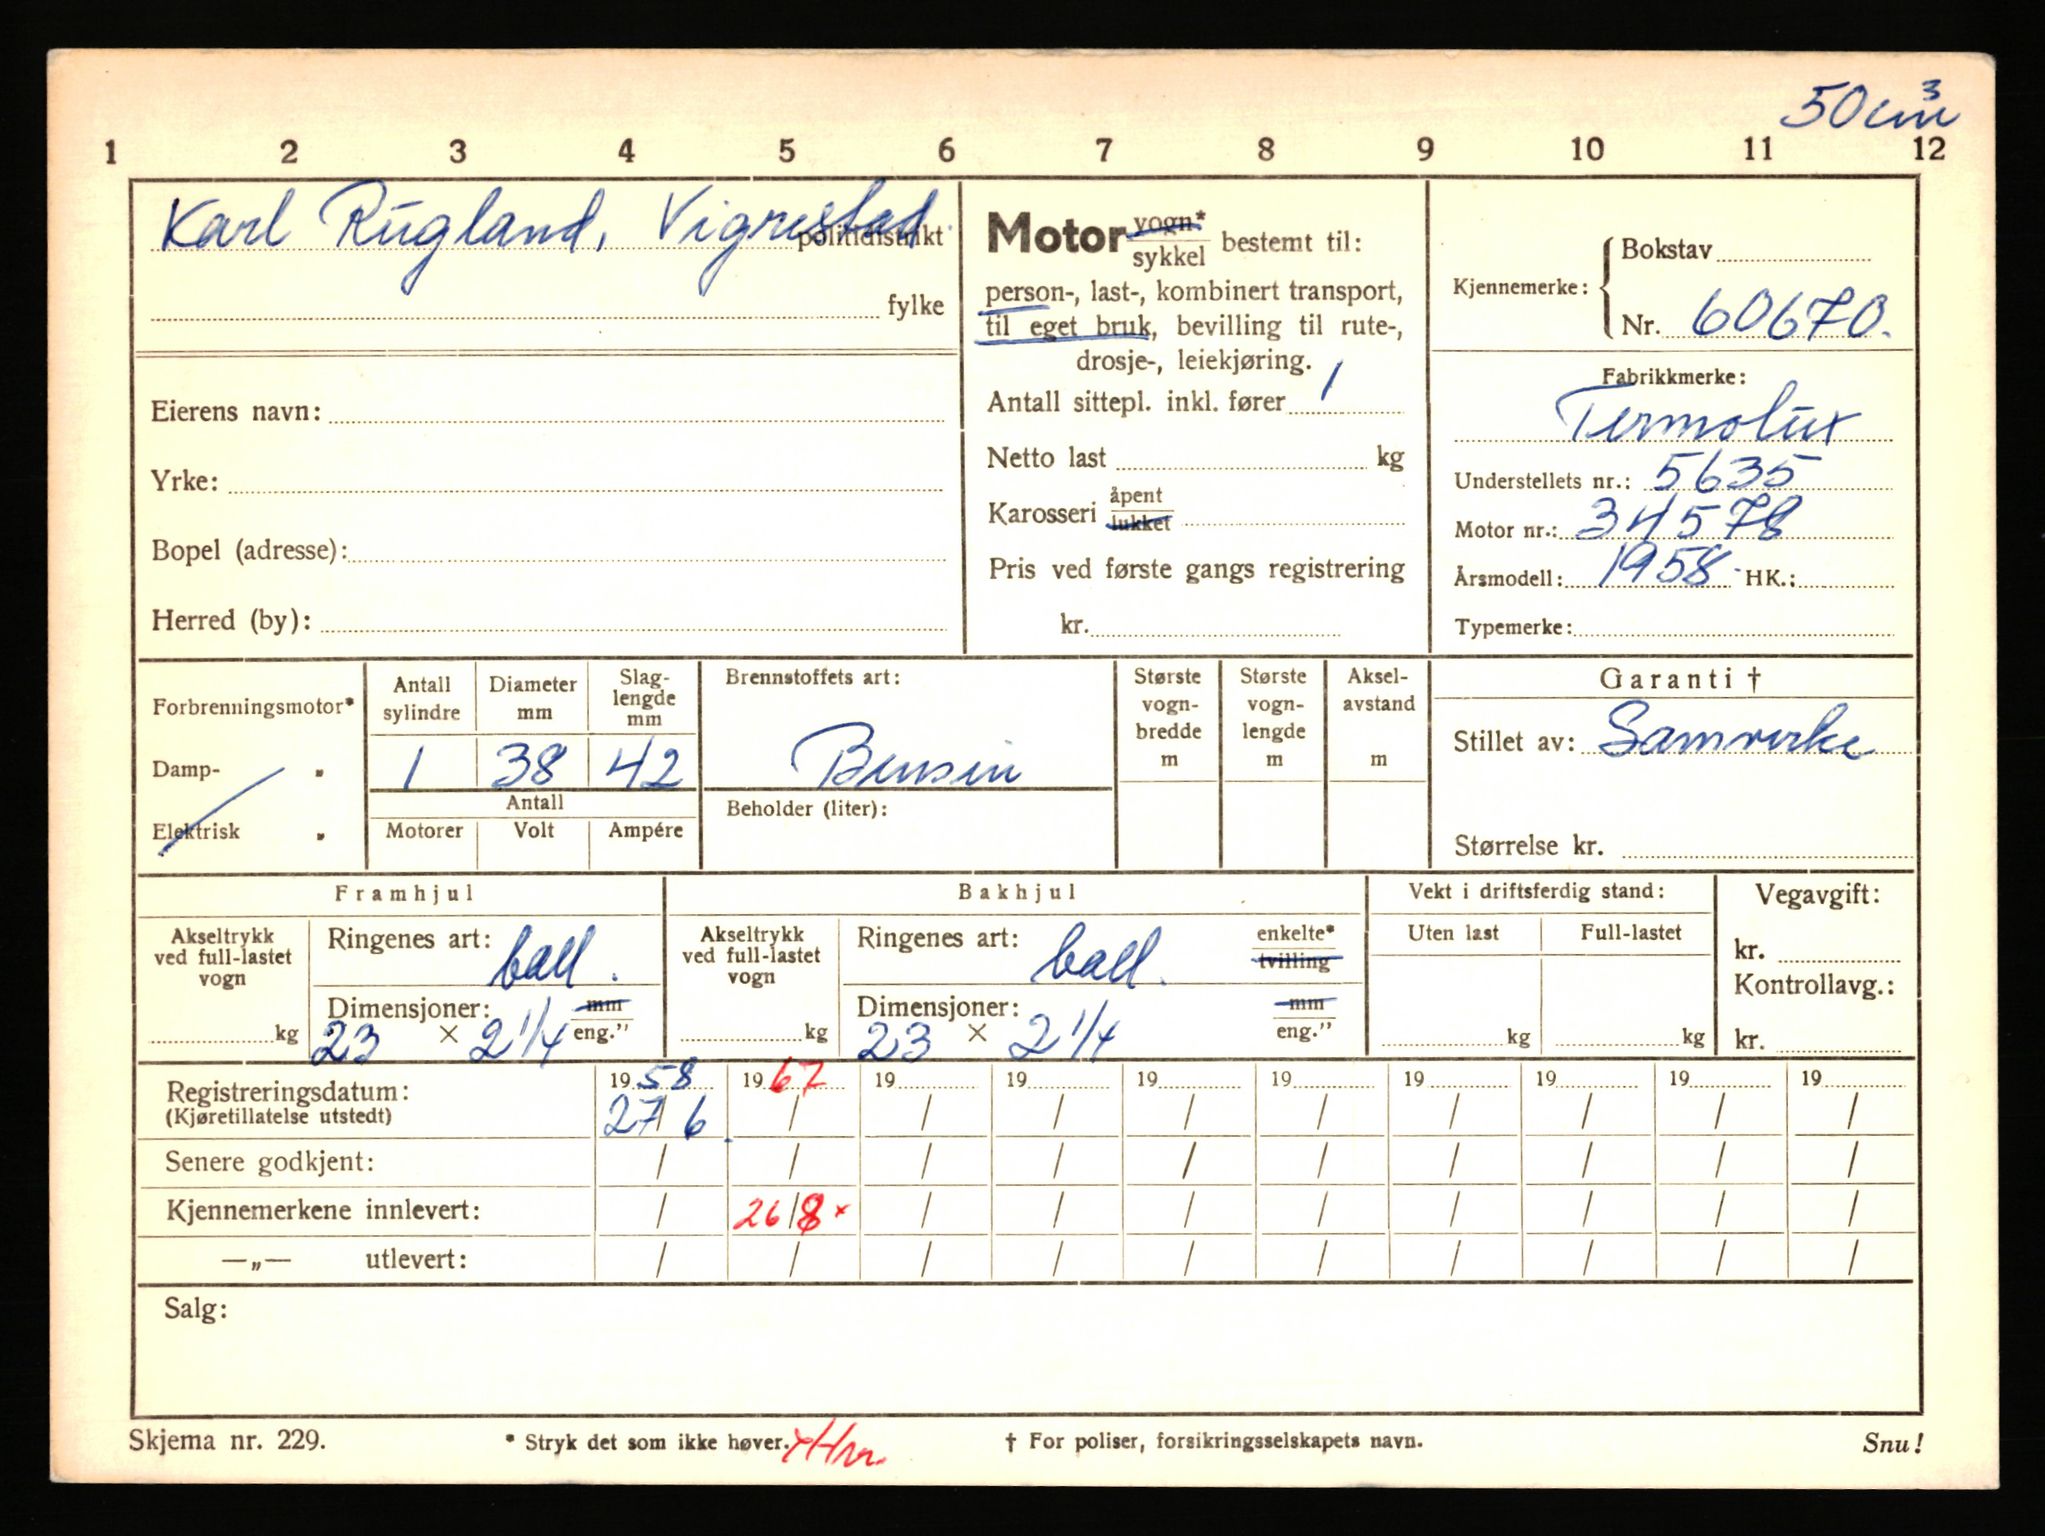 50 cm³
1 2 3 4 5 6 7 8 9 10 11 12
Karl Rugland, Vigrestad politidistrikt
fylke
Eierens navn:
Yrke:
Bopel (adresse):
Herred (by):
Motor vogn* sykkel bestemt til:
person-, last-, kombinert transport,
til eget bruk, bevilling til rute-,
drosje-, leiekjøring.
Antall sittepl. inkl. fører 1
Netto last kg
Karosseri åpent lukket
Pris ved første gangs registrering
kr.
Kjennemerke: Bokstav
Nr. 60670.
Fabrikkmerke:
Termolux
Understellets nr.: 5635
Motor nr.: 34578
Årsmodell: 1958 HK.:
Typemerke:
Forbrenningsmotor*
Damp- „
Elektrisk „
Antall sylindre
Diameter mm
Slaglengde mm
1 38 42
Antall
Motorer Volt Ampére
Brennstoffets art:
Bensin
Beholder (liter):
Største vognbredde m
Største vognlengde m
Akselavstand m
Garanti †
Stillet av: Samvirke
Størrelse kr.
Framhjul
Akseltrykk ved full-lastet vogn
kg
Ringenes art: ball.
Dimensjoner: mm
23 × 2 1/4 eng."
Bakhjul
Akseltrykk ved full-lastet vogn
kg
Ringenes art: ball. enkelte* tvilling
Dimensjoner: mm
23 × 2 1/4 eng."
Vekt i driftsferdig stand:
Uten last Full-lastet
kg kg
Vegavgift:
kr.
Kontrollavg.:
kr.
Registreringsdatum: 19 58 19 67 19 19 19 19 19 19 19 19
(Kjøretillatelse utstedt) 27/6 / / / / / / / / /
Senere godkjent: / / / / / / / / / /
Kjennemerkene innlevert: / 26/8 x / / / / / / / /
—„— utlevert: / / / / / / / / / /
Salg:
Skjema nr. 229. * Stryk det som ikke høver. † For poliser, forsikringsselskapets navn. Snu!